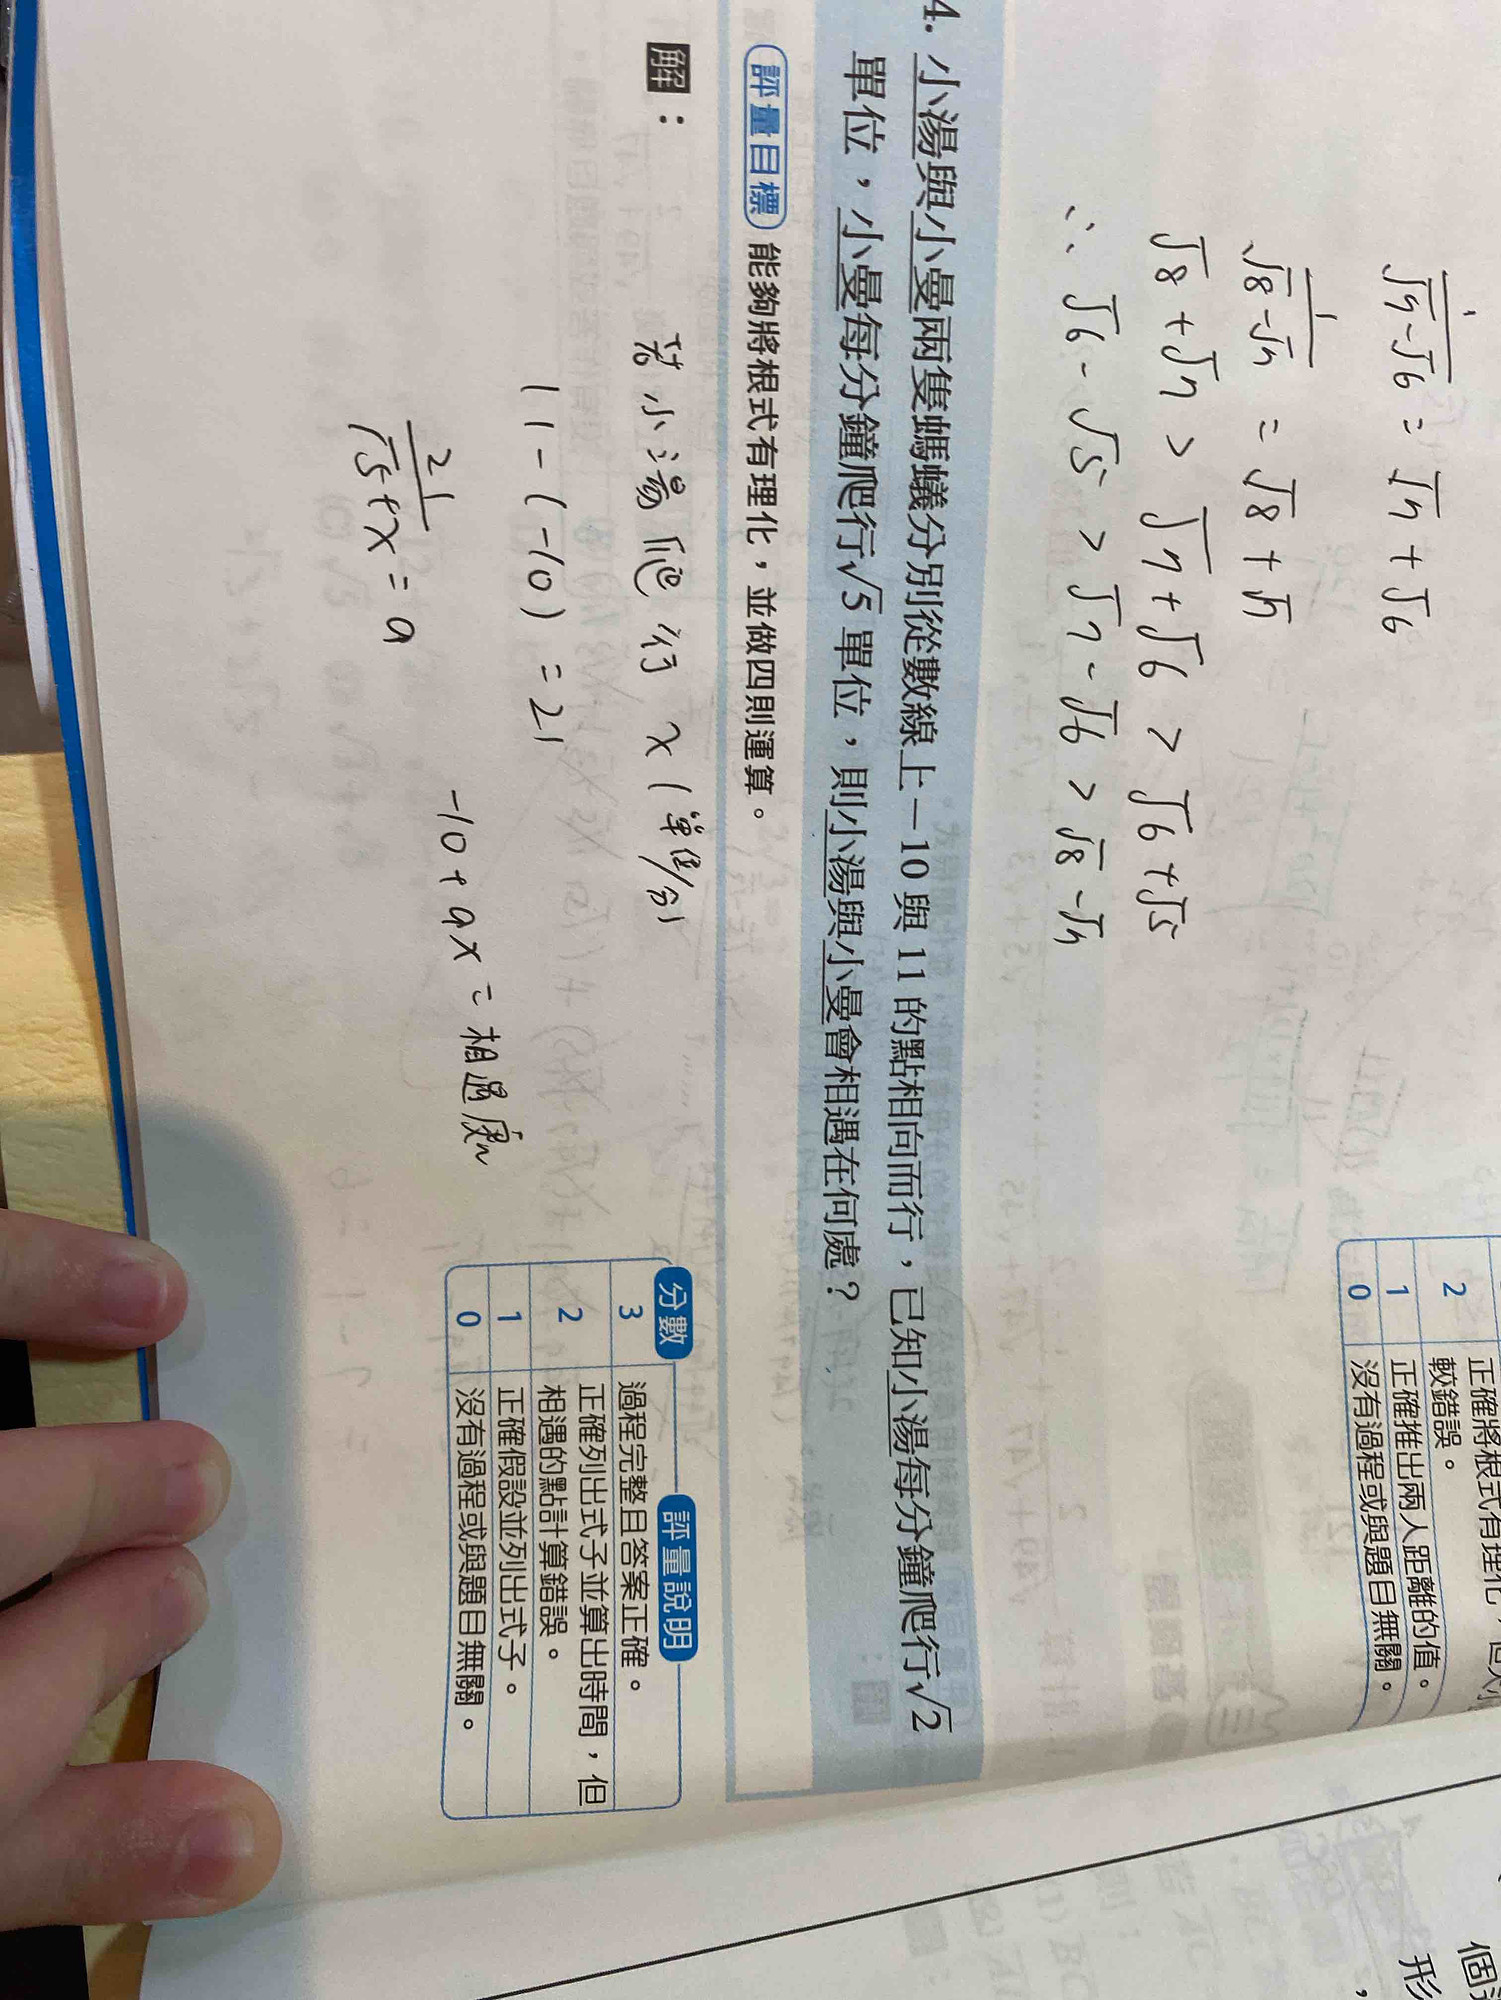 1/(√7-√6) = √7 + √6
1/(√8-√7) = √8 + √7
√8 + √7 > √7 + √6 > √6 + √5
∴ √6 - √5 > √7 - √6 > √8 - √7
2
較錯誤。
1 正確推出兩人距離的值。
0 沒有過程或與題目無關。
4. 小湯與小曼兩隻螞蟻分別從數線上-10與11的點相向而行,已知小湯每分鐘爬行√2
單位,小曼每分鐘爬行√5單位,則小湯與小曼會相遇在何處?
評量目標 能夠將根式有理化,並做四則運算。
解:
若小湯爬行 x (單位/分)
11 - (-10) = 21
-10 + ax = 相遇處
21/(√5+x) = a
分數 評量說明
3 過程完整且答案正確。
2 正確列出式子並算出時間,但
相遇的點計算錯誤。
1 正確假設並列出式子。
0 沒有過程或與題目無關。